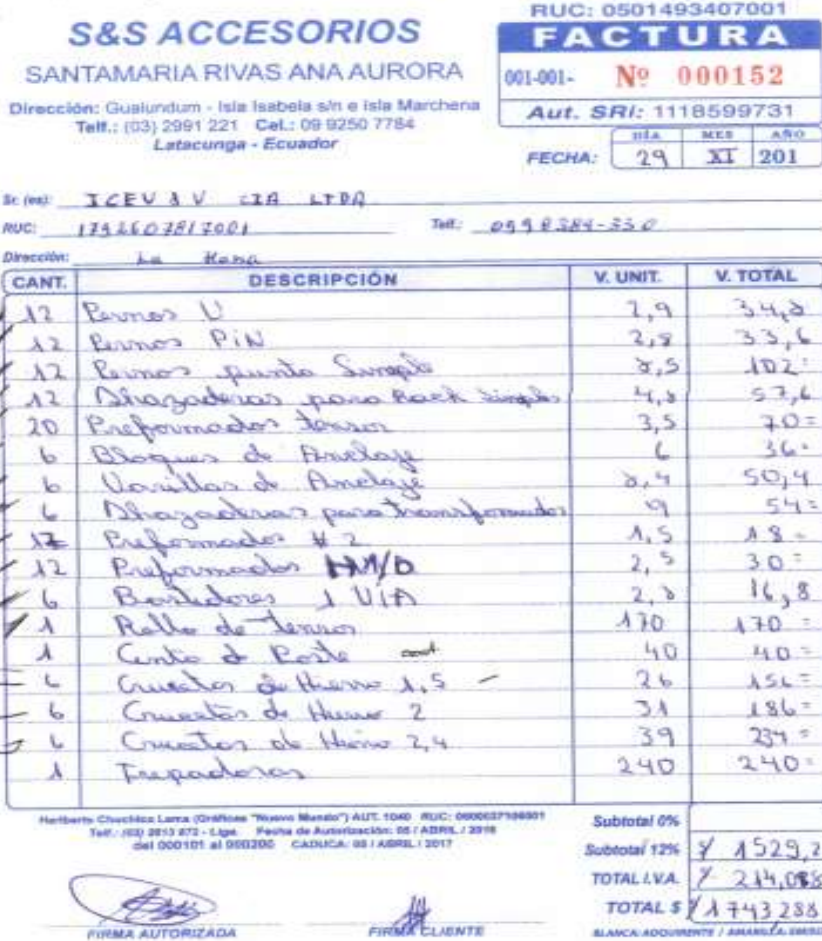 RUC: 0501493407001
S&S ACCESORIOS
FACTURA
SANTAMARIA RIVAS ANA AURORA
001-001- Nº 000152
Dirección: Gualundum - Isla Isabela s/n e Isla Marchena
Aut. SRI: 1118599731
Telf.: (03) 2991 221 Cel.: 09 9250 7784
Latacunga - Ecuador
DÍA MES AÑO
FECHA: 29 XI 201
Sr. (es): ICEV & V CIA LTDA
RUC: 1792607817001 Telf.: 0998384-330
Dirección: La
CANT. DESCRIPCIÓN V. UNIT. V. TOTAL
12 Pernos U 2,9 34,8
12 Pernos PiN 2,8 33,6
12 Pernos punto Simple 8,5 102=
12 Abrazaderas para Rack simples 4,8 57,6
20 Preformados tensor 3,5 70=
6 Bloques de Anclaje 6 36=
6 Varillas de Anclaje 8,4 50,4
6 Abrazaderas para transformador 9 54=
12 Preformados # 2 1,5 18=
12 Preformados 2,5 30=
6 Bastidores 1 VIA 2,8 16,8
1 Rollo de tensor 170 170=
1 Cinta Poste 40 40=
6 Crucetas de Hierro 1,5 26 156=
6 Crucetas de Hierro 2 31 186=
6 Crucetas de Hierro 2,4 39 234=
1 Trepadoras 240 240=
Heriberto Chuchico Lara (Gráficas "Nuevo Mundo") AUT. 1040 RUC:
Telf.: (03) 2813 872 - Liga. Fecha de Autorización: 05 / ABRIL / 2016
del 000101 al 000200 CADUCA: 05 / ABRIL / 2017
Subtotal 0%
Subtotal 12% 1529,2
TOTAL I.V.A. 214,088
TOTAL $ 1743288
FIRMA AUTORIZADA FIRMA CLIENTE
BLANCA: ADQUIRENTE / AMARILLA: EMISOR